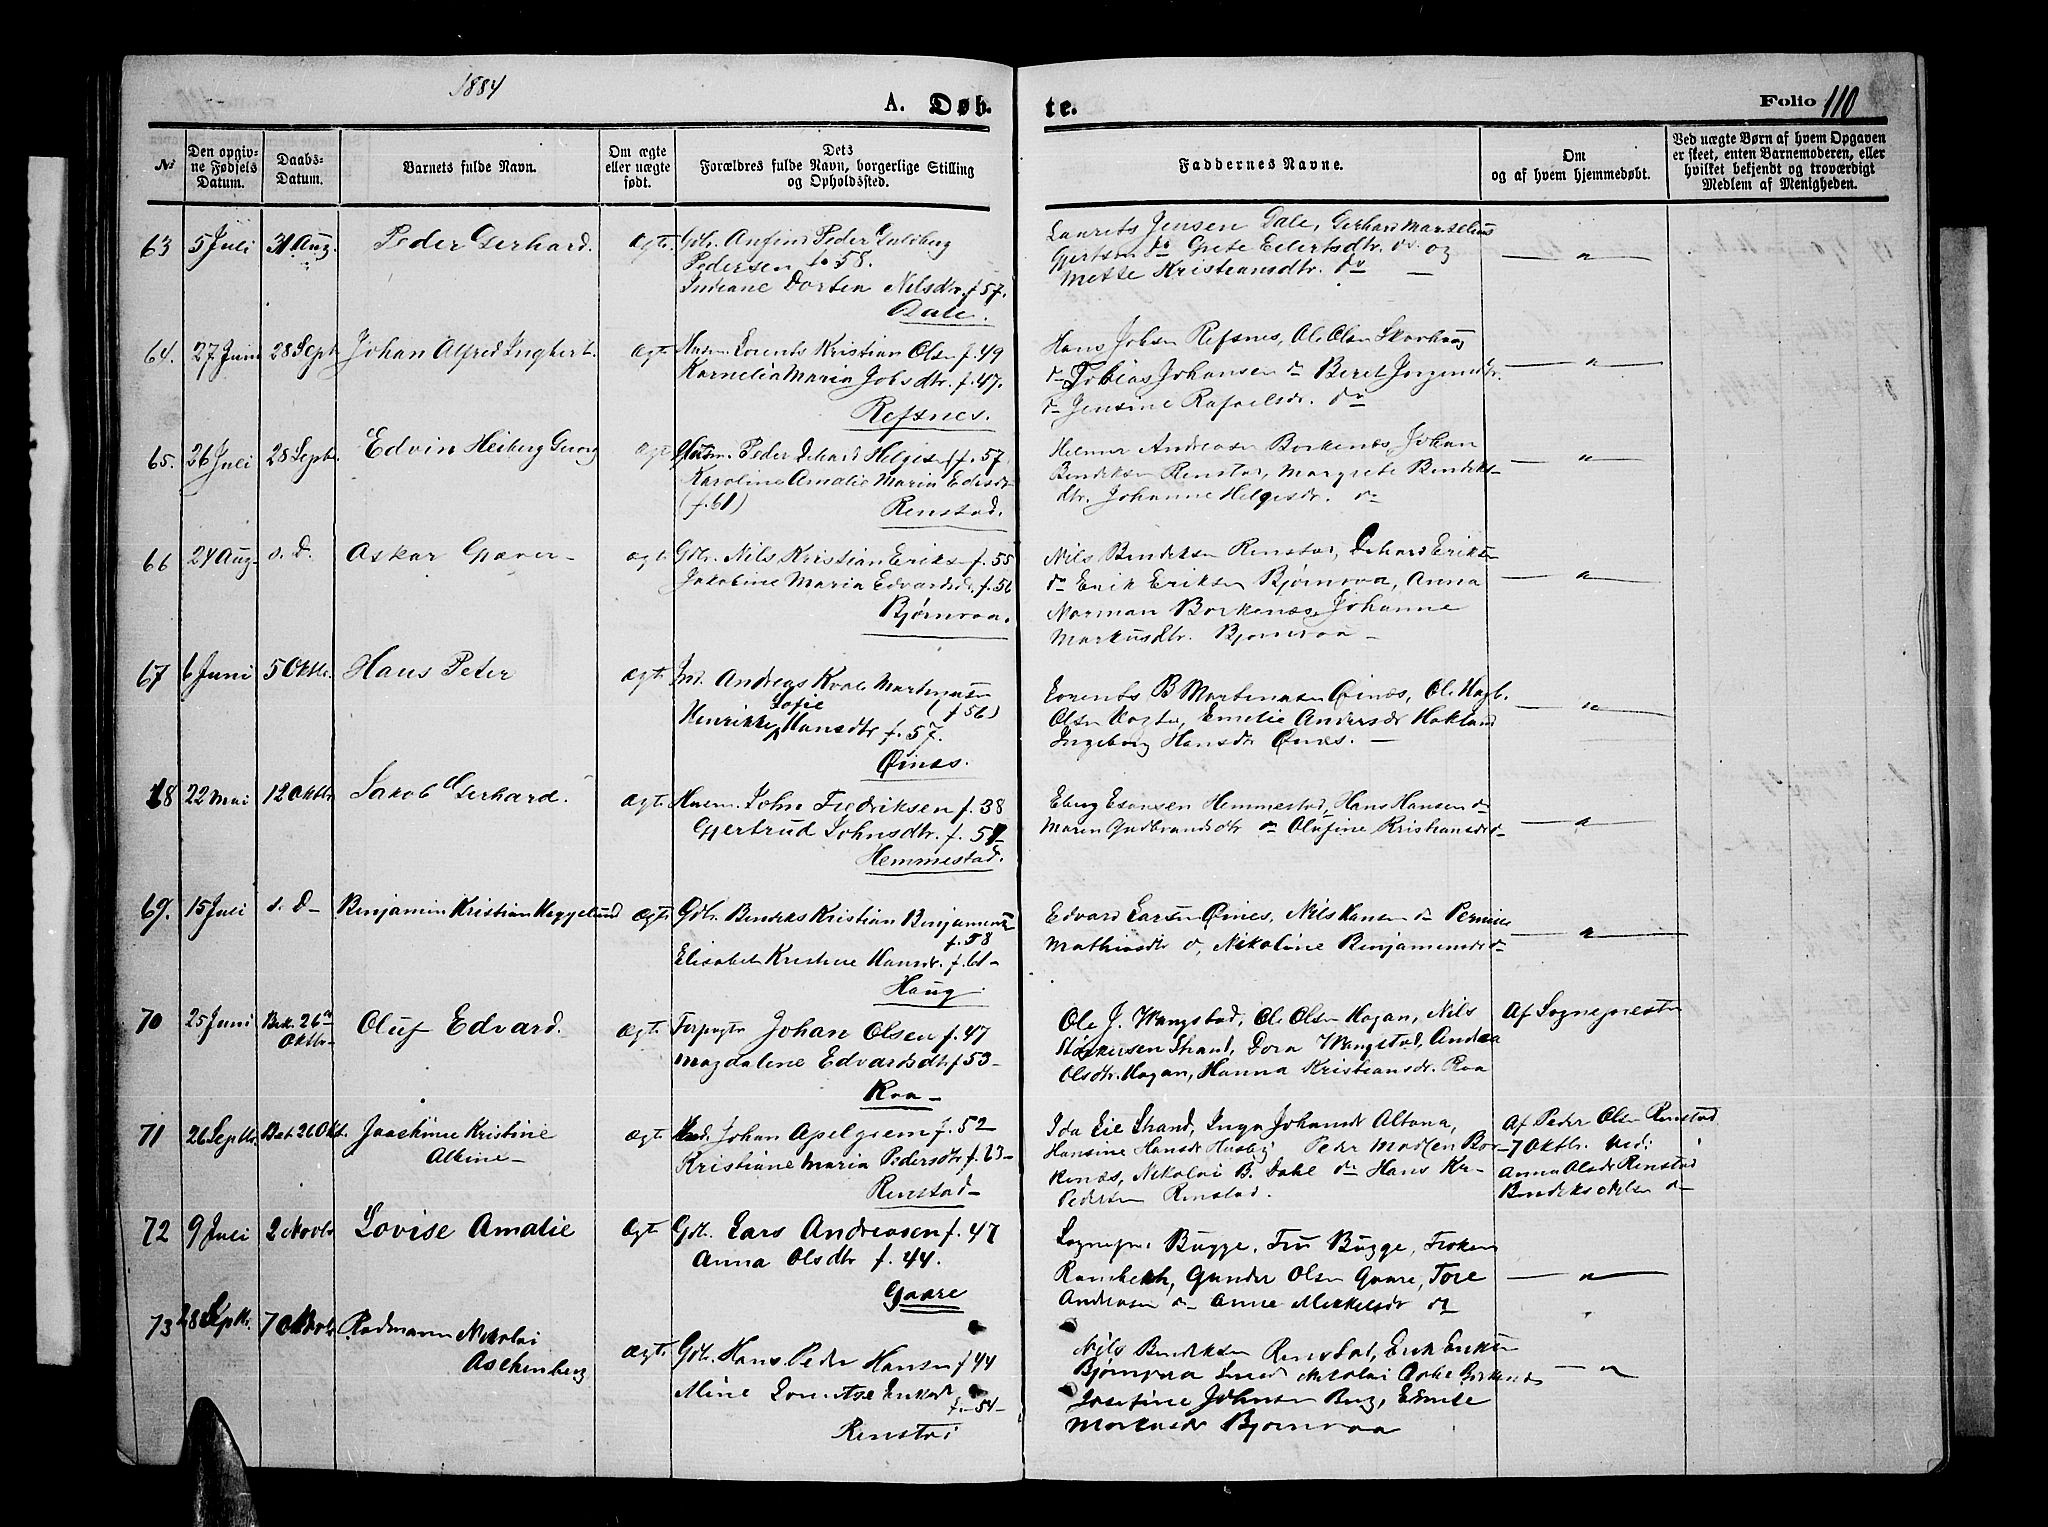 1884
A. Døb-
te.
Folio 110
No
Den opgiv-
ne Fødsels
Datum.
Daabs-
Datum.
Barnets fulde Navn.
Om ægte
eller uægte
født.
Dets
Forældres fulde Navn, borgerlige Stilling
og Opholdssted.
Faddernes Navne.
Om
og af hvem hjemmedøbt.
Ved uægte Børn af hvem Opgaven
er skeet, enten Barnemoderen, eller
hvilket bekjendt og troværdigt
Medlem af Menigheden.
63
5 Juli
31 Aug.
Peder Gerhard.
ægte
Gdbr. Anfind Peder
Pedersen f. 58.
Indiane Dortea Nilsdtr. f 57.
Dale.
Laurits Jensen Dale, Gerhard Marselius
Gjertsen do Grete Eilertsdtr. do og
Mette Kristiansdtr. do —
— " —
64.
27 Juni
28 Sept
Johan Alfred Ingbert.
ægt.
Lorents Kristian Olsen f. 49
Kornelia Maria Jobsdtr. f. 47.
Refsnes.
Hans Jobsen Refsnes, Ole Olsen Skarhaug
do Tobias Johansen do Beret Jørgensdtr.
do Jensine Rafaelsdr. do
— " —
65.
26 Juli
28 Septr.
Edvin Heiberg Georg
ægt
Peder Dehard Helgesen f. 57
Karoline Amalie Maria Edisdr
(f. 61)
Renstad.
Helmer Andreasen Borkenæs, Johan
Bendiksen Renstad, Margrete Bendiks-
dtr. Johanne Helgesdr. do
— " —
66
24 Aug.
s. D.
Askar Gæver —
ægt.
Gdbr. Nils Kristian Eriks. f. 55
Jakobine Maria Edvardsd. f. 56
Bjørnraa.
Nils Bendiksen Renstad, Dehard Eriksen
do Erik Eriksen Bjørnraa, Anna
Norman Borkenæs, Johanne
Markusdtr. Bjørnraa —
— " —
67
6 Juni
5 Oktbr.
Hans Peter
ægt.
Ind. Andreas Kvale Martinusen
Sofie (f 56)
Henrikke Hansdtr f. 57.
Øinæs.
Lorents B Martinusen Øinæs, Ole Hagb.
Olsen, Emelie Andersdr Hokland
Ingeborg Hansdtr Øinæs. —
— " —
68
22 Mai
12 Oktbr
Jakob Gerhard.
ægt.
John Fredriksen f. 38
Gjertrud Johnsdtr. f. 51
Hemmestad.
Eberg Esansen Hemmestad, Hans Hansen do
Maren Gudbrandsdtr do Olufine Kristiansdr do
— " —
69.
15 Juli
s. D —
Benjamin Kristian Heggelund
ægt.
Gdbr. Bendiks Kristian Benjaminsen
f. 58
Elisabet Kristine Hansdr. f. 61 —
Haug.
Edvard Larsen Øines, Nils Hansen do Pernille
Mathiasdtr do, Nikoline Benjaminsdr do
— " —
70
25 Juni
Bek. 26de
Oktbr —
Oluf Edvard.
ægt.
Forpagter Johan Olsen f. 47
Magdalene Edvardsdtr f 53 —
Roa —
Ole J. Wangstad, Ole Olsen Hagan, Nils
Størkersen Strand, Dora Wangstad, Andrea
Olsdtr. Hagan, Hanna Kristiansdr. Roa
Af Sognepresten
71
26 Septbr.
Bek. 26 Okt.
Joachime Kristine
Alkine —
ægt.
Ind. Johan Apelgren f. 52
Kristiane Maria Pedersdtr f. 63 —
Renstad —
Ida Lie Strand, Inga Johansdr Altona,
Hansine Hansdr Husby Peder Madsen Bor-
kenæs, Nikolai B. Dahl do Hans Kr.
Pedersen Renstad.
Af Peder Olsen Renstad
7 Oktbr. Ved:
Anna Olsdr Renstad
Bendiks Nilsen do —
72
9 Juli
2 Novbr
Lovise Amalie
ægt.
Gdb. Lars Andreasen f. 47
Anna Olsdtr f. 44.
Gaare
Sognepr. Bugge, Fru Bugge, Frøken
Rambech, Gunder Olsen Gaare, Tore
Andreasen do Anne Mikkelsdr do
— " —
73
28 Septbr.
7 Oktbr
Rodmann Nikolai
Aschenberg
ægt.
Gdbr. Hans Peder Hansen f 44
Mine
f. 54 —
Renstad
Nils Bendiksen Renstad, Erik Eriksen
Bjørnraa Nikolai
Josefine Johnsen Berg, Emilie
Markusdr Bjørnraa
— " —